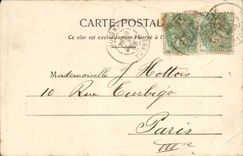 CARTE POSTALE
Ce côté est exclusivement réservé à l'
Mademoiselle J Hottois
10 Rue Turbigo
Paris
IIIe